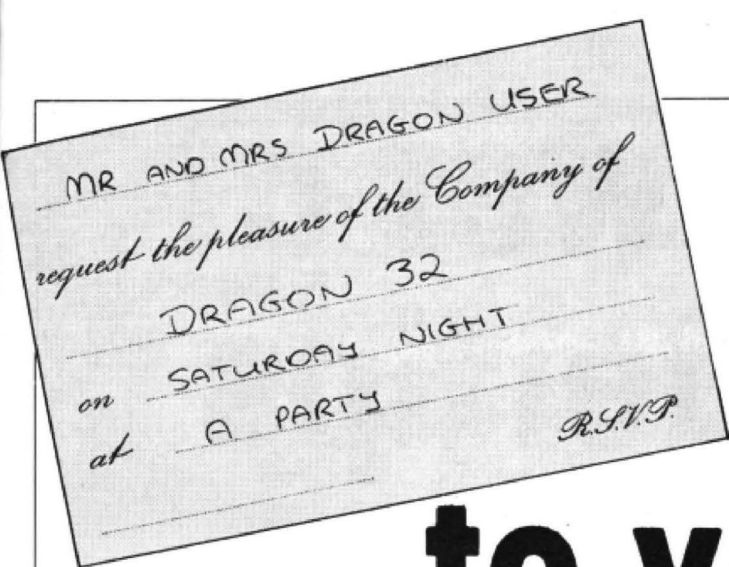 MR AND MRS DRAGON USER
request the pleasure of the Company of
DRAGON 32
on SATURDAY NIGHT
at A PARTY
R.S.V.P.
to